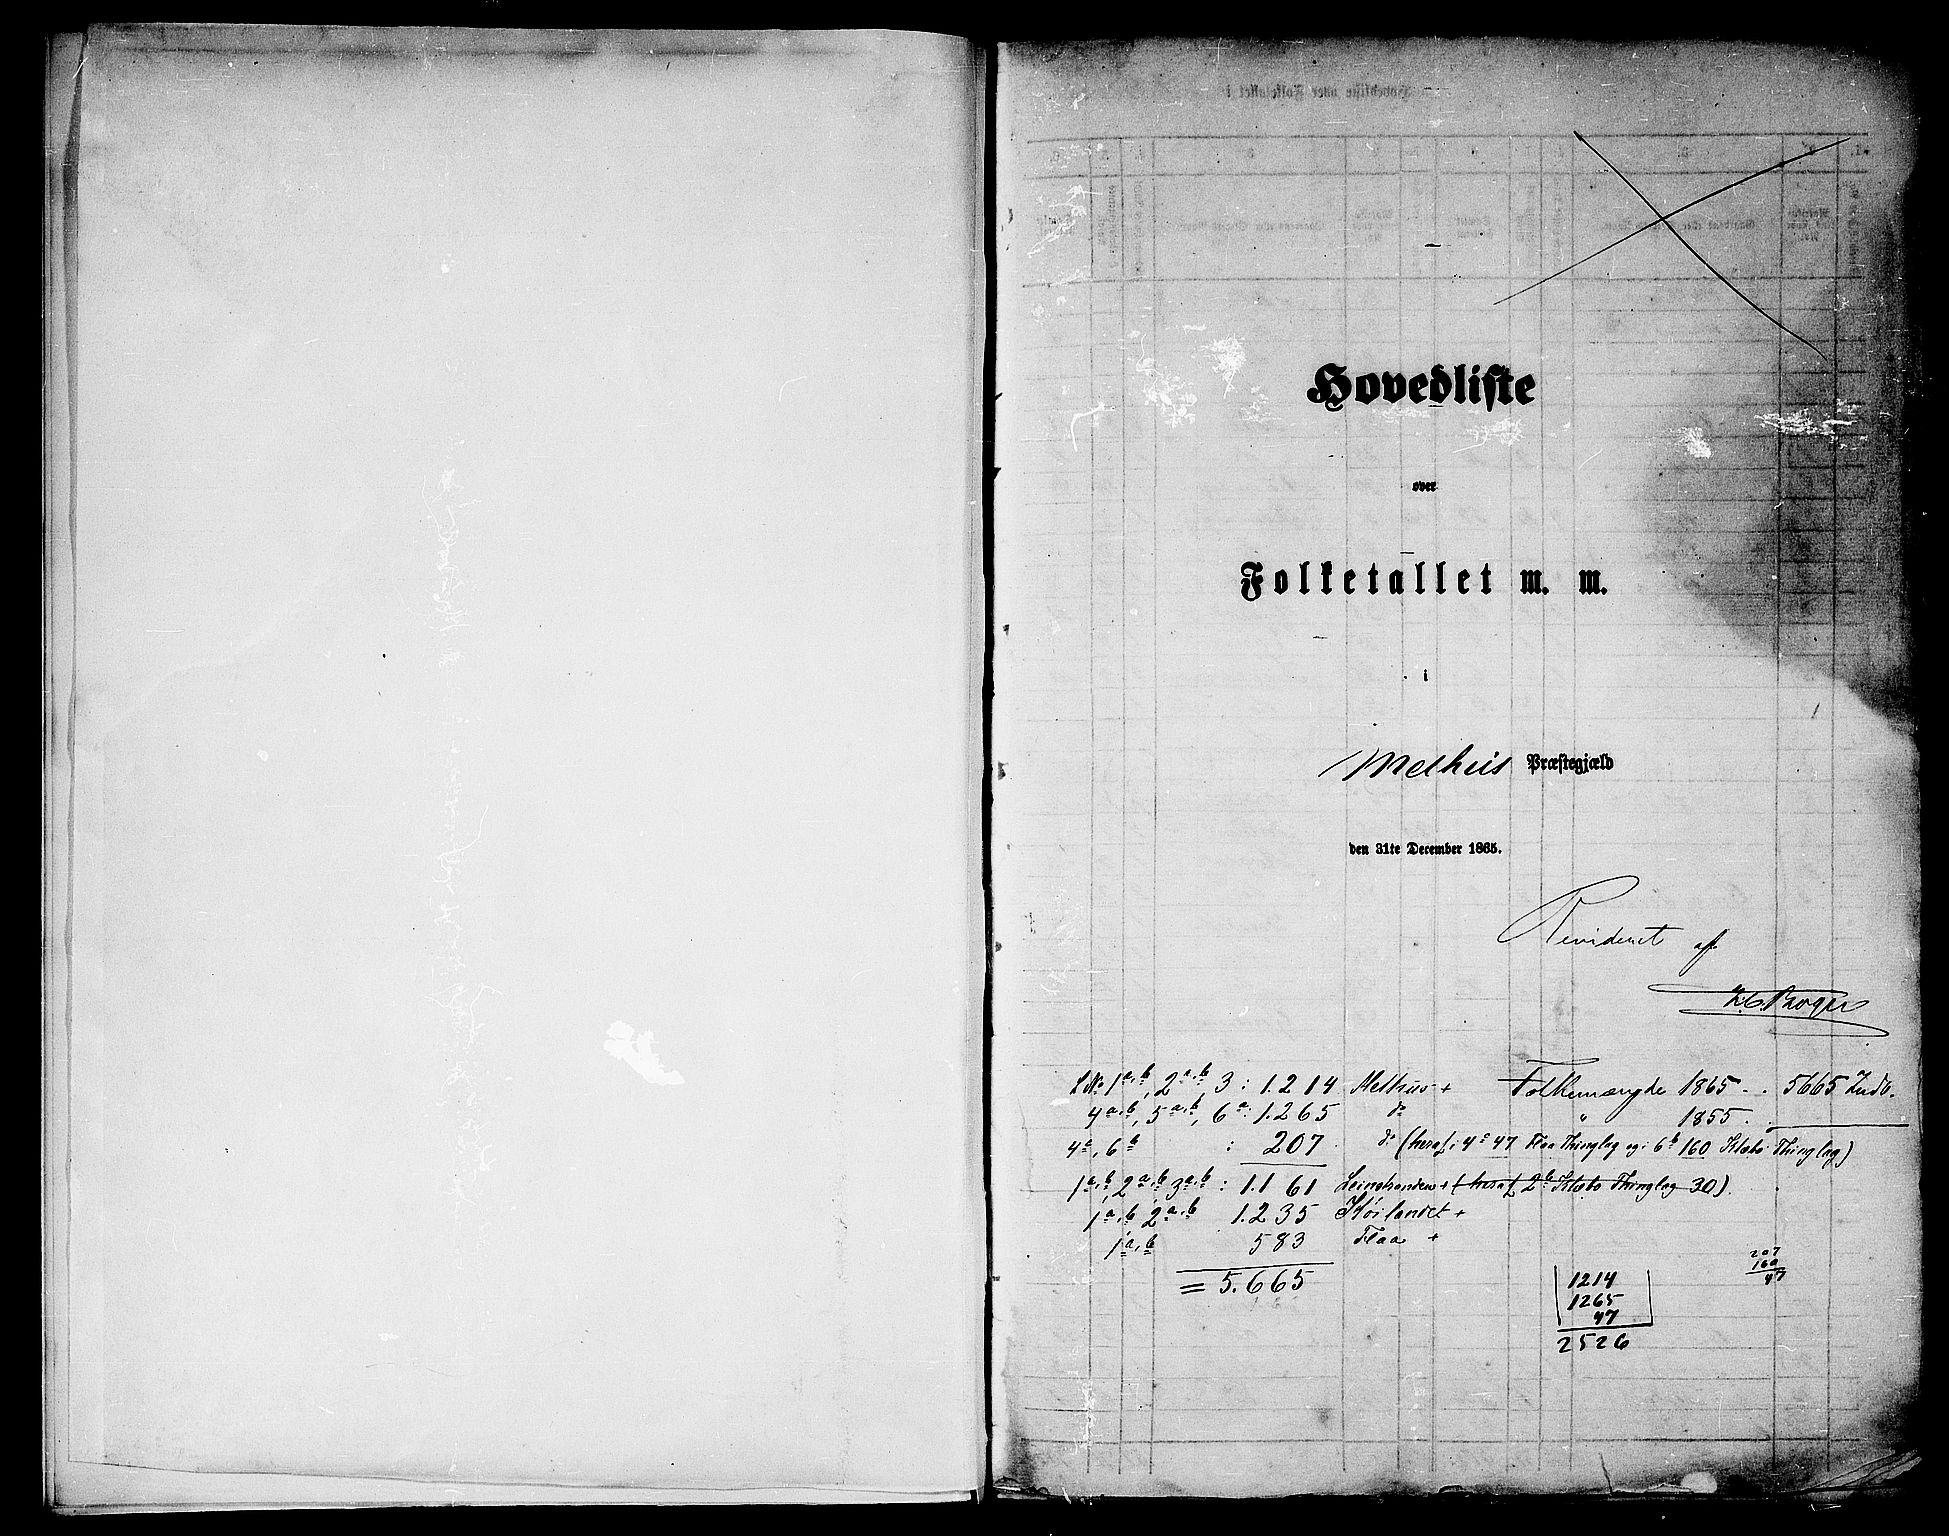 Hovedliste
over
Folketallet m. m.
i
Melhus Præstegjæld
den 31te December 1865.
Revideret af
L No 1 a, b, 2 a, b 3 : 1.214 Melhus + Folkemængde 1865 . . 5665 Indv.
4 a, b, 5 a, b, 6 a : 1.265 do " 1855 .
4 a, 6 b : 207 do (heraf i 4 a 47 Flaa Thinglag og i 6 b 160 Klæbo Thinglag)
1 a, b 2 a, b 3 a, b : 1.161 Leinstranden + (heraf 2 b Klæbo Thinglag 30)
1 a, b 2 a, b 1.235 Hørlandet +
1 a, b 583 Flaa +
= 5.665
207
160
47
1214
1265
47
2526